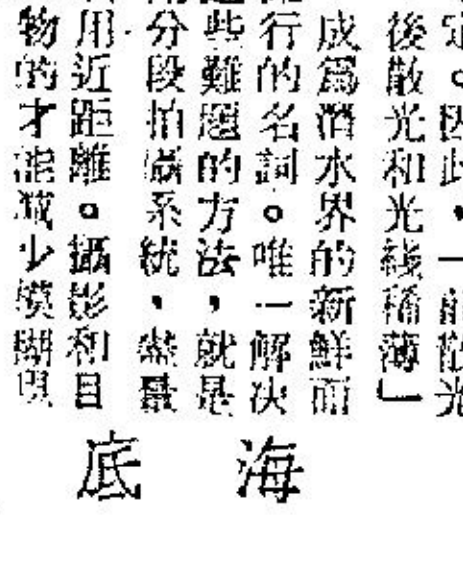 定。因此,一前散光
後散光和光綫稀薄」
成爲潛水界的新鮮而
行的名詞。唯一解决
些難題的方法,就是
分段拍攝系統,盡量
用近距離。攝影和目
物的才能减少模糊現
海底